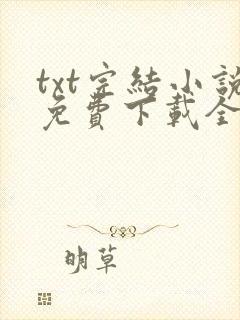 txt完結小說
免費下載全
明草